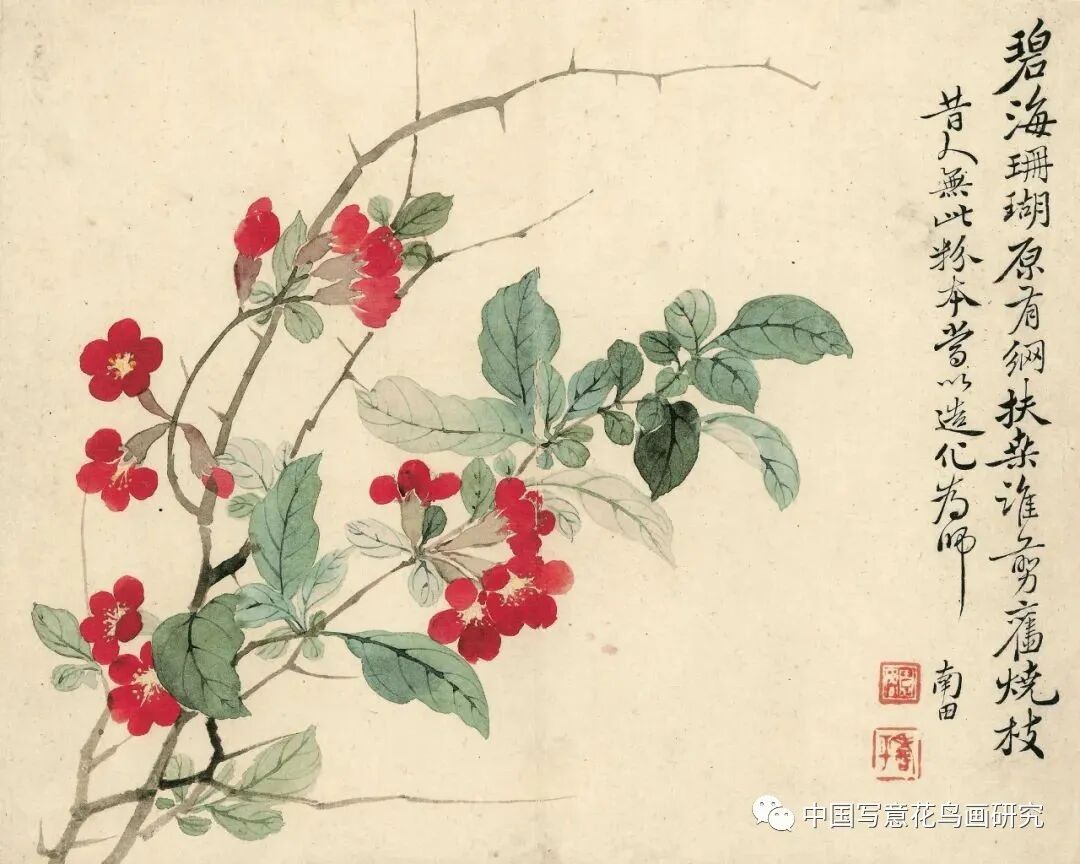 碧海珊瑚原有網扶桒誰剪舊燒枝
昔人無此粉本當以造化為師
南田
壽平
中国写意花鸟画研究